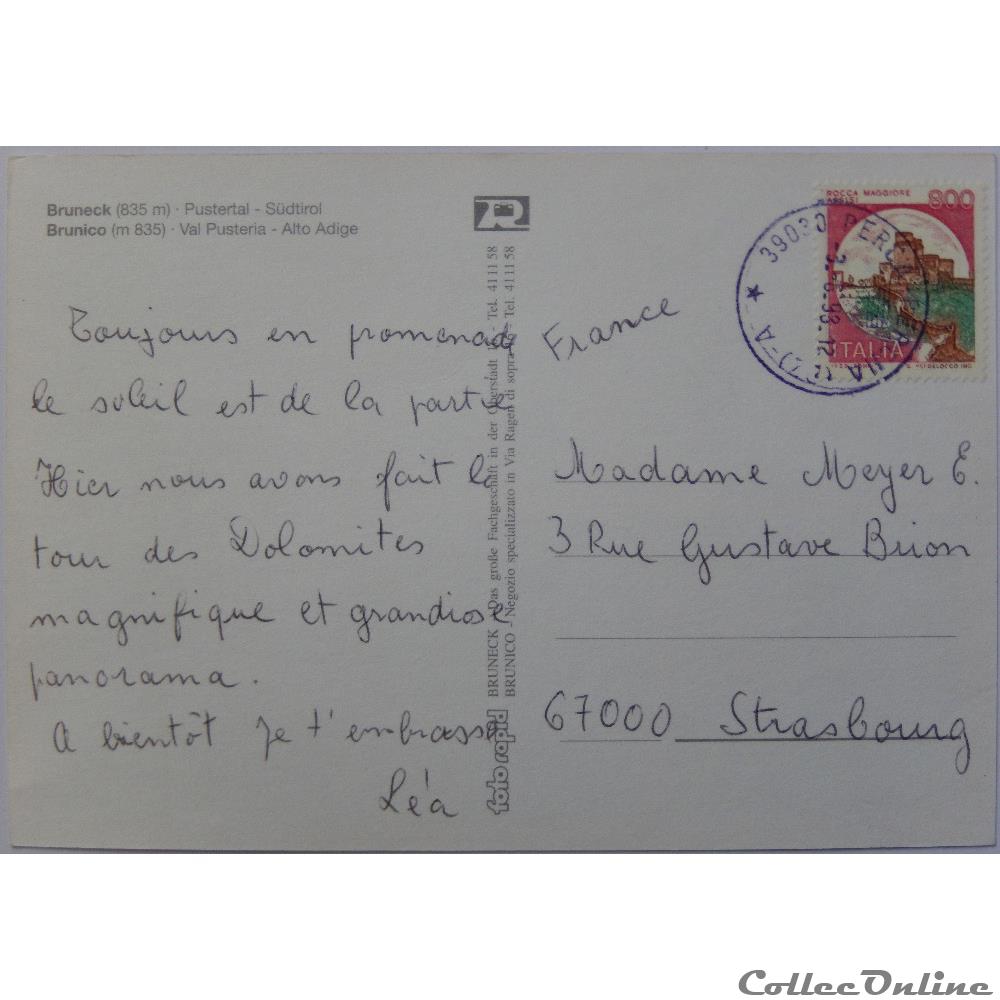 Bruneck (835 m) · Pustertal - Südtirol
Brunico (m 835) · Val Pusteria - Alto Adige
Toujours en promenade
le soleil est de la partie
Hier nous avons fait le
tour des Dolomites
magnifique et grandiose
panorama.
A bientôt je t'embrasse
Léa
foto rapid
BRUNECK - Das große Fachgeschäft in der Oberstadt - Tel. 411158
BRUNICO - Negozio specializzato in Via Ragen di sopra - Tel. 411158
ROCCA MAGGIORE
ASSISI
800
ITALIA
39030
France
Madame Meyer E.
3 Rue Gustave Brion
67000 Strasbourg
CollecOnline